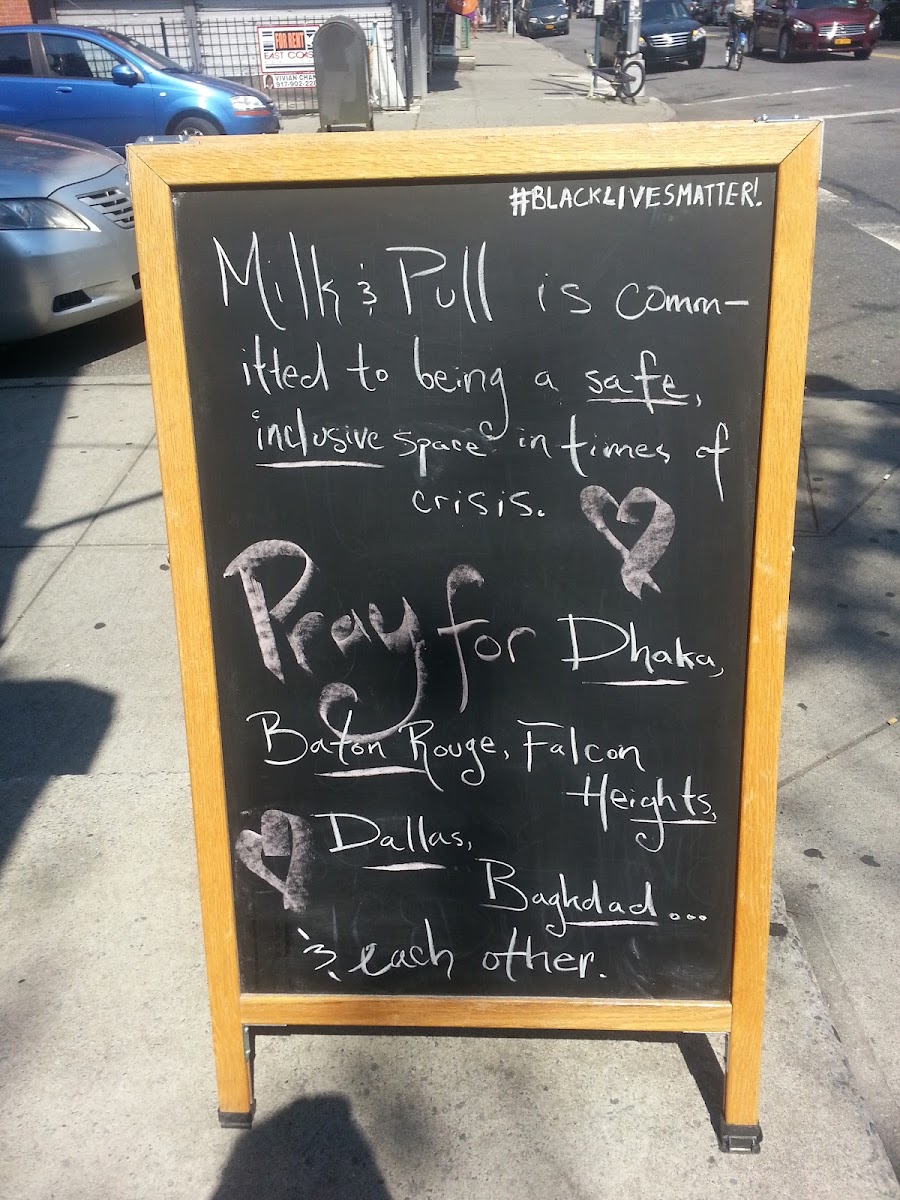 FOR RENT
EAST COAS
VIVIAN CHAN
917-902-22
#BLACKLIVESMATTER!
Milk & Pull is comm-
itted to being a safe,
inclusive space in times of
crisis.
Pray for Dhaka,
Baton Rouge, Falcon
Heights,
Dallas,
Baghdad...
& each other.